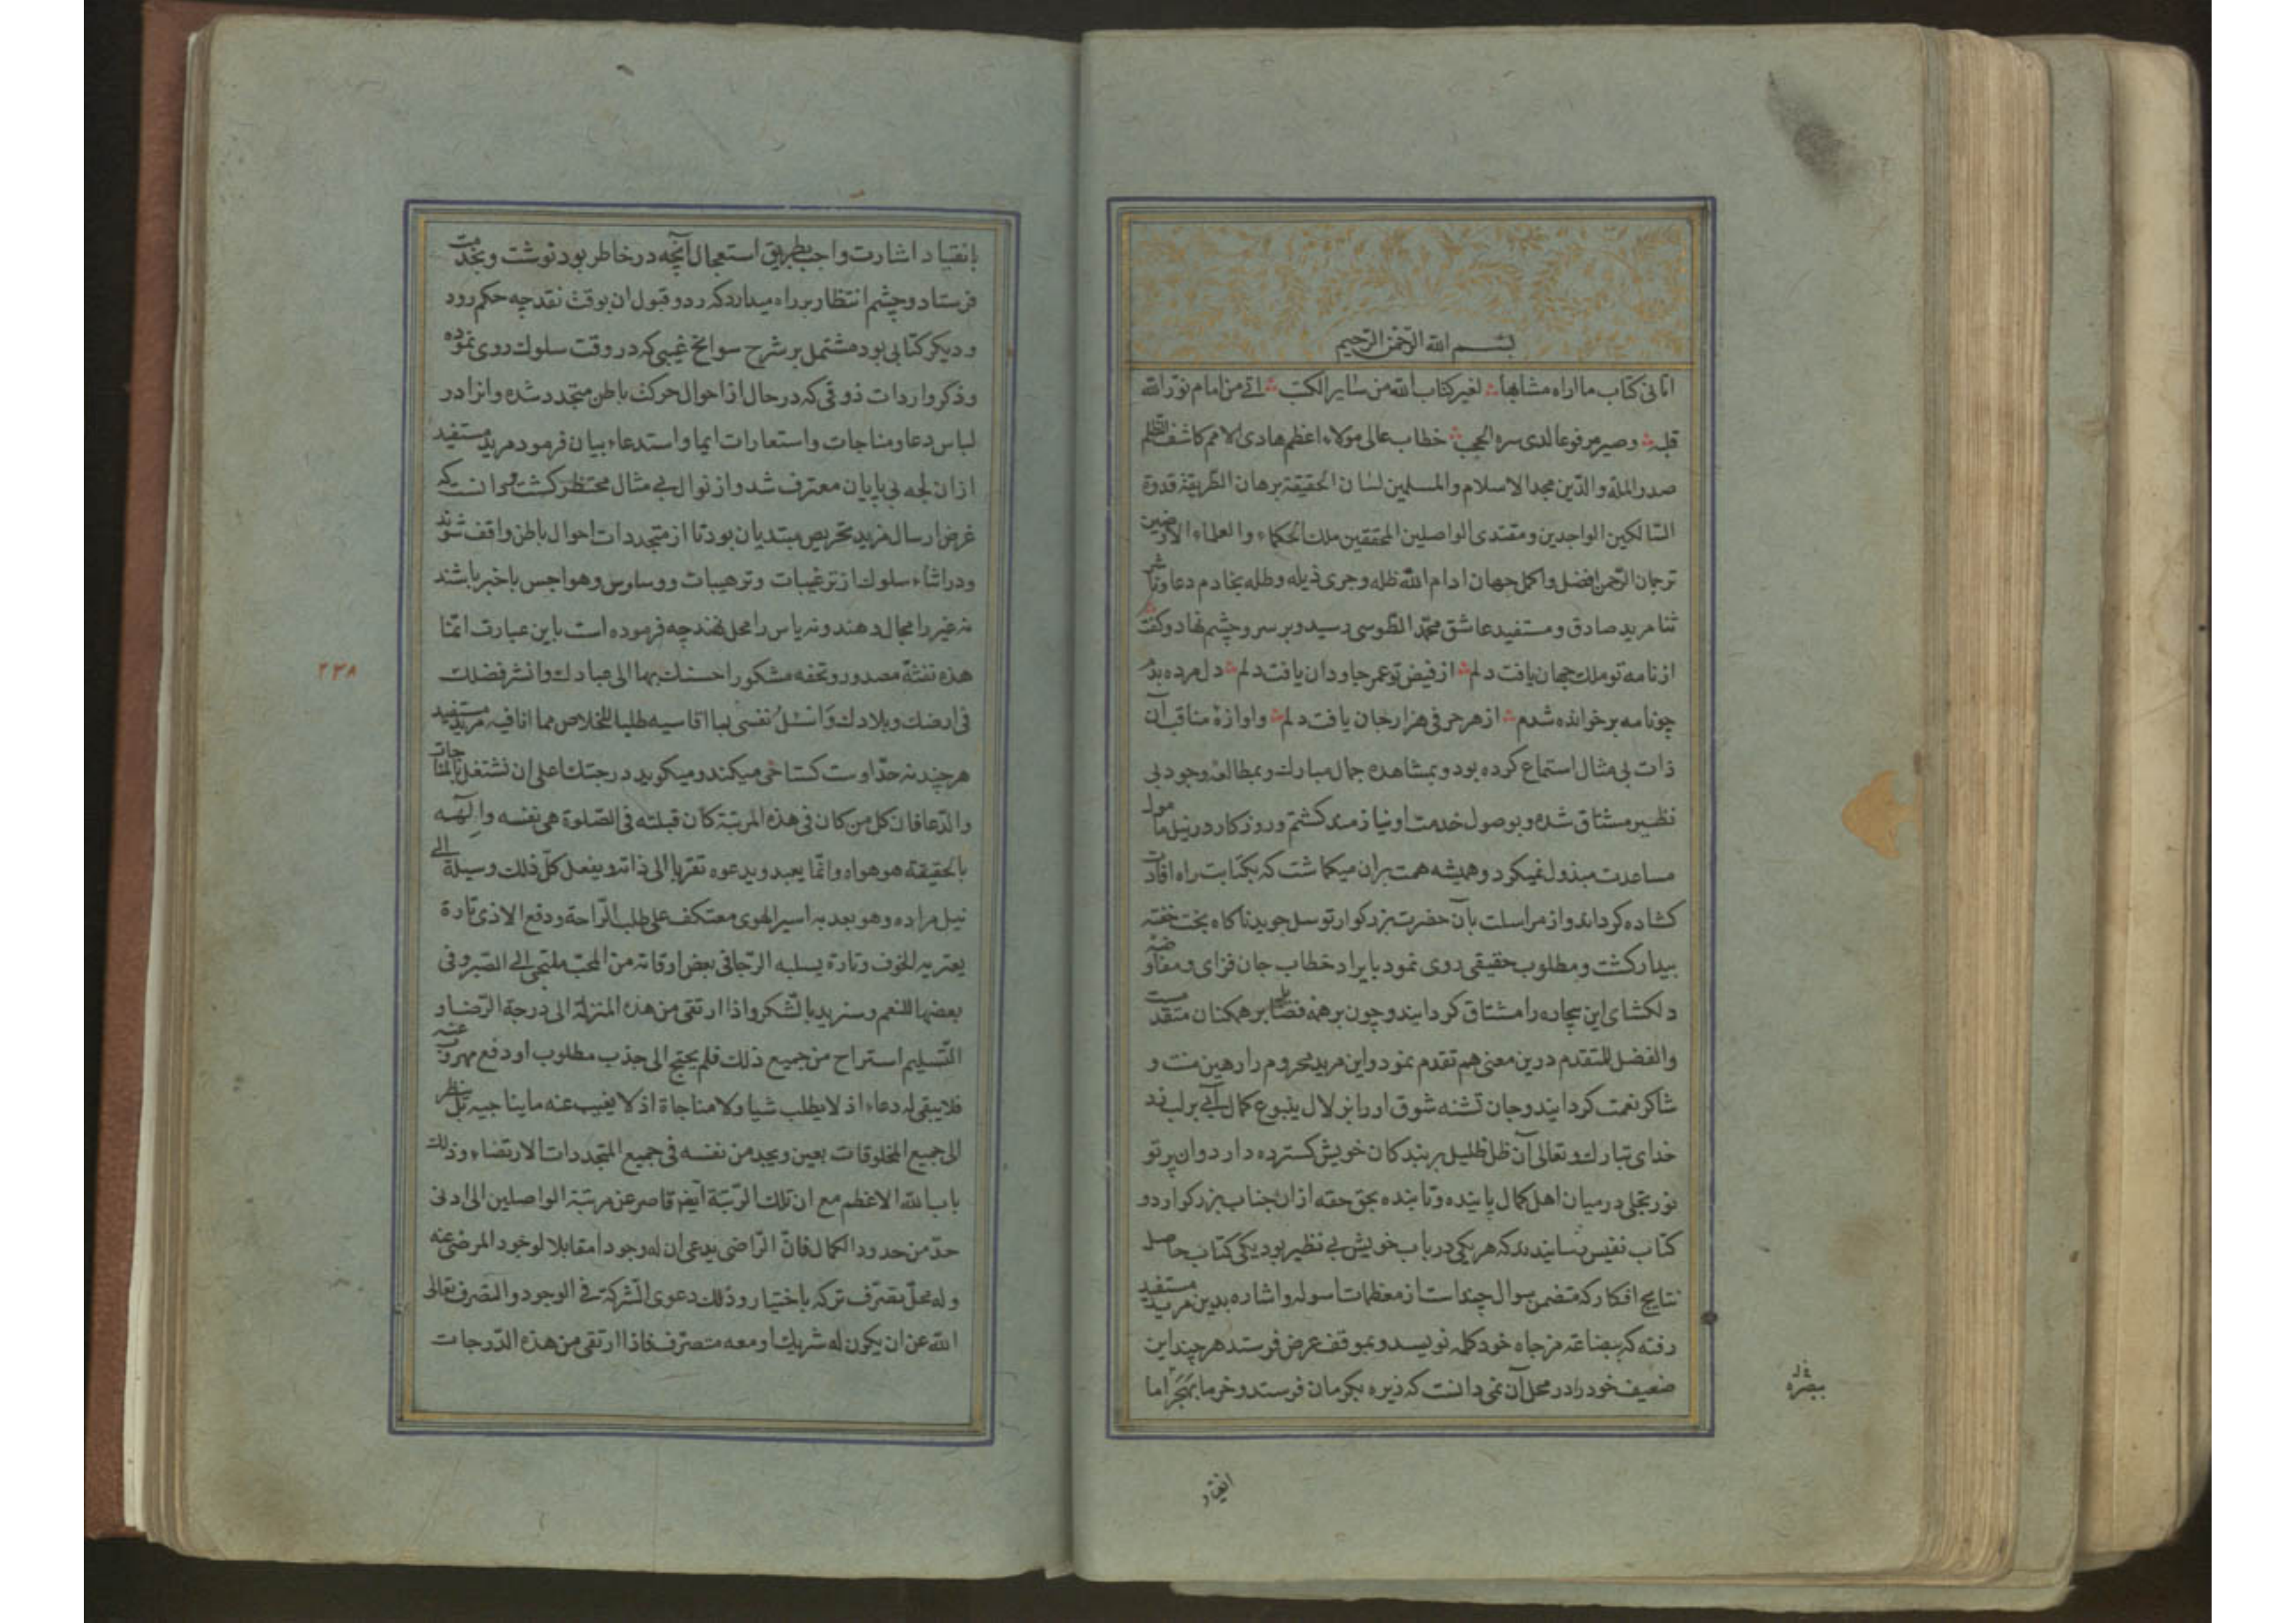 بسم الله الرحمن الرحیم
اتانی کتاب ما اراه مشابها لغیر کتاب الله من سایر الکتب اتی من امام نور الله
قلبه وصیر مرفوعا لدی سره الحجب خطاب عالی مولاء اعظم هادی الامم کاشف الظلم
صدر الملة والدّین مجد الاسلام والمسلمین لسان الحقیقة برهان الطّریقة قدوة
السّالکین الواجدین ومقتدی الواصلین المحققین ملک الحکماء والعلماء الارضین
ترجمان الرّحمن افضل واکمل جهان ادام الله ظله وجری ذیله وطله بخادم دعا وناشر
ثنا مرید صادق ومستفید عاشق محمّد الطّوسی رسید وبر سر وچشم نهاد وکفت
از نامه تو ملک جهان یافت دلم از فیض تو عمر جاودان یافت دلم دل مرده بد
چو نامه بر خوانده شدم از هر حرفی هزار جان یافت دلم واوازۀ مناقب آن
ذات بی مثال استماع کرده بود وبمشاهده جمال مبارک وبمطالعه وجود بی
نظیر مشتاق شده وبوصول خدمت او نیازمند کشتم وروزکار در نیل مامول
مساعدت مبذول نمیکرد وهمیشه همت بران میکماشت که بکتابت راه افادت
کشاده کرداند واز مراسلت بآن حضرت بزرکوار توسل جوید ناکاه بخت خفته
بیدار کشت ومطلوب حقیقی روی نمود بایراد خطاب جان فزای ومفاوضه
دلکشای این بیچاره را مشتاق کردانیند وچون بر همه فضایل بر همکنان متقدمست
والفضل للمتقدم درین معنی هم تقدم نمود واین مرید محروم را رهین منت و
شاکر نعمت کردانیند وجان تشنه شوق او را بزلال ینبوع کمال آبی بر لب زد
خدای تبارک وتعالی آن ظل ظلیل بر بندکان خویش کسترده دارد وان پرتو
نور تجلی در میان اهل کمال پاینده وتابنده بحق حقه ازان جناب بزرکوار دو
کتاب نفیس رسانیدند که هر یکی در باب خویش بی نظیر بود یکی کتاب حاصل
نتایج افکار که متضمن سوال چند است از معظمات اسوله واشاره بدین مرید مستفید
رفته که بضاعة مزجاه خود کلمه نویسد وبموقف عرض فرستد هر چند این
ضعیف خود را در محل آن نمی دانست که زیره بکرمان فرستد وخرما بهجر اما
ببصره
انقیاد
بانقیاد اشارت واجب بطریق استعجال آنچه در خاطر بود نوشت وبخدمت
فرستاد وچشم انتظار بر راه میدارد که رد وقبول ان بوقت نقد چه حکم رود
ودیکر کتابی بود مشتمل بر شرح سوانح غیبی که در وقت سلوک روی نموده
وذکر واردات ذوقی که در حال از احوال حرکت باطن متجدد شده وانرا در
لباس دعا ومناجات واستعارات ایما واستدعاء بیان فرمود مرید مستفید
ازان لجه بی پایان معترف شد واز نوال بی مثال محتظر کشت ودانست که
غرض ارسال مزید تحریص مبتدیان بود تا از متجددات احوال باطن واقف شوند
ودر اثناء سلوک از ترغیبات وترهیبات ووساوس وهواجس باخبر باشند
نه غیر را مجال دهند ونه یاس را محل نهند چه فرموده است باین عبارت انما
هذه نفثة مصدور وتحفه مشکور احسنک بها الی عبادک وانشر فضلک
۲۳۸
فی ارضک وبلادک وانسل نفسی بها اقاسیه طلبا للخلاص مما انا فیه مرید مستفید
هر چند نه حدّ اوست کستاخی میکند ومیکوید درجتک اعلی ان تشتغل بالمناجات
والدّعا فان کل من کان فی هذه المرتبة کان قبلته فی الصّلوة هی نفسه والهه
بالحقیقة هو هواه وانّما یعبد ویدعوه تقربا الی ذاته ویفعل کلّ ذلک وسیلة الی
نیل مراده وهو بعد به اسیر الهوی معتکف علی طلب الرّاحة ودفع الاذی تارة
یعتریه الخوف وتارة یسلبه الرّجا فی بعض اوقاته من المحب ملتجی الی الصّبر وفی
بعضها للنعم وسنزید بالشکر واذا ارتقی من هذه المنزلة الی درجة الرّضا و
التّسلیم استراح من جمیع ذلک فلم یحتج الی جذب مطلوب او دفع مهروب عنه
فلا یبقی له دعاء اذ لا یطلب شیا ولا مناجاة اذ لا یغیب عنه ما یناجیه بل ینظر
الی جمیع المخلوقات بعین ویجد من نفسه فی جمیع المتجددات الارتضاء وذلک
باب الله الاعظم مع ان تلک الرّتبة ایضا قاصر عن مرتبة الواصلین الی ادنی
حدّ من حدود الکمال فانّ الرّاضی یدعی ان له وجودا مقابلا لوجود المرضی عنه
وله محلّ تصرّف ترکه باختیار وذلک دعوی الشّرکة فی الوجود والتصرف تعالی
الله عن ان یکون له شریک او معه متصرف فاذا ارتقی من هذه الدّرجات